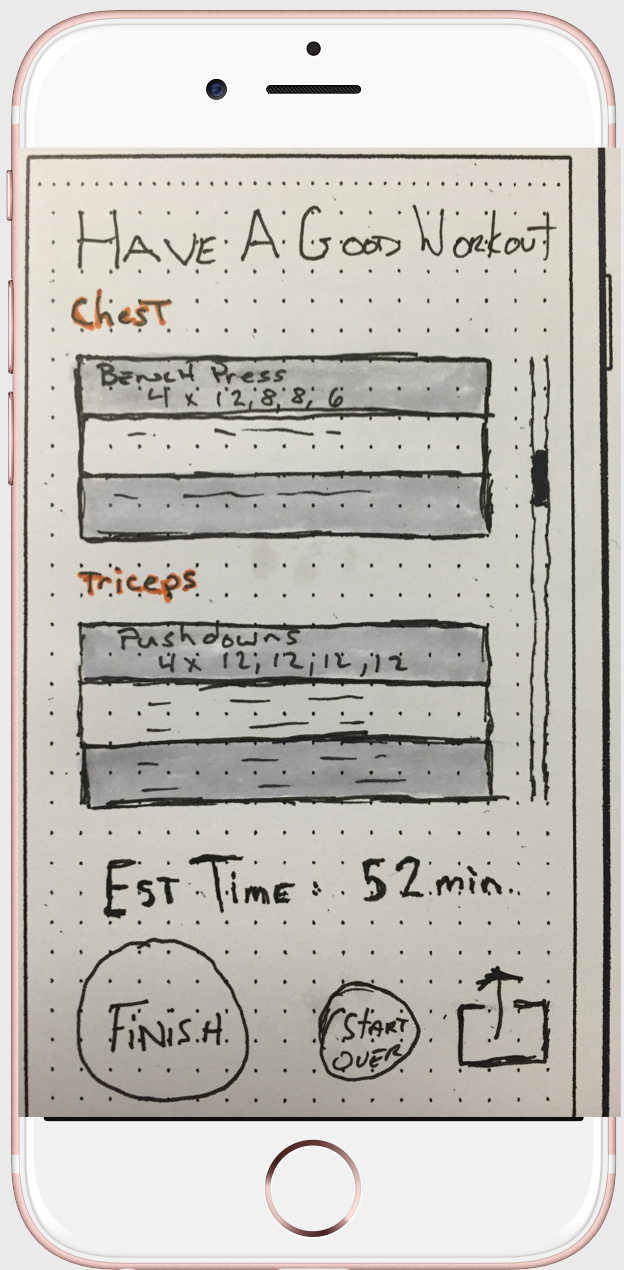 HAVE A GOOD WORKOUT
Chest
Bench Press
4 x 12, 8, 8, 6
Triceps
Pushdowns
4x 12, 12, 12, 12
EST TIME: 52 min.
FINISH
START
OVER